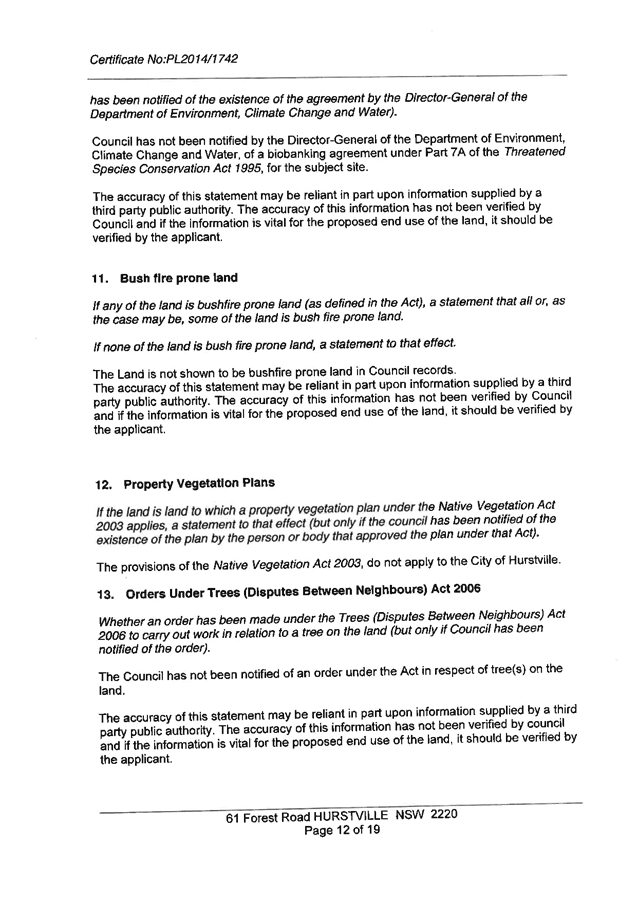 Certificate No:PL2014/1742
has been notified of the existence of the agreement by the Director-General of the
Department of Environment, Climate Change and Water).
Council has not been notified by the Director-General of the Department of Environment,
Climate Change and Water, of a biobanking agreement under Part 7A of the Threatened
Species Conservation Act 1995, for the subject site.
The accuracy of this statement may be reliant in part upon information supplied by a
third party public authority. The accuracy of this information has not been verified by
Council and if the information is vital for the proposed end use of the land, it should be
verified by the applicant.
11. Bush fire prone land
If any of the land is bushfire prone land (as defined in the Act), a statement that all or, as
the case may be, some of the land is bush fire prone land.
If none of the land is bush fire prone land, a statement to that effect.
The Land is not shown to be bushfire prone land in Council records.
The accuracy of this statement may be reliant in part upon information supplied by a third
party public authority. The accuracy of this information has not been verified by Council
and if the information is vital for the proposed end use of the land, it should be verified by
the applicant.
12. Property Vegetation Plans
If the land is land to which a property vegetation plan under the Native Vegetation Act
2003 applies, a statement to that effect (but only if the council has been notified of the
existence of the plan by the person or body that approved the plan under that Act).
The provisions of the Native Vegetation Act 2003, do not apply to the City of Hurstville.
13. Orders Under Trees (Disputes Between Neighbours) Act 2006
Whether an order has been made under the Trees (Disputes Between Neighbours) Act
2006 to carry out work in relation to a tree on the land (but only if Council has been
notified of the order).
The Council has not been notified of an order under the Act in respect of tree(s) on the
land.
The accuracy of this statement may be reliant in part upon information supplied by a third
party public authority. The accuracy of this information has not been verified by council
and if the information is vital for the proposed end use of the land, it should be verified by
the applicant.
61 Forest Road HURSTVILLE NSW 2220
Page 12 of 19